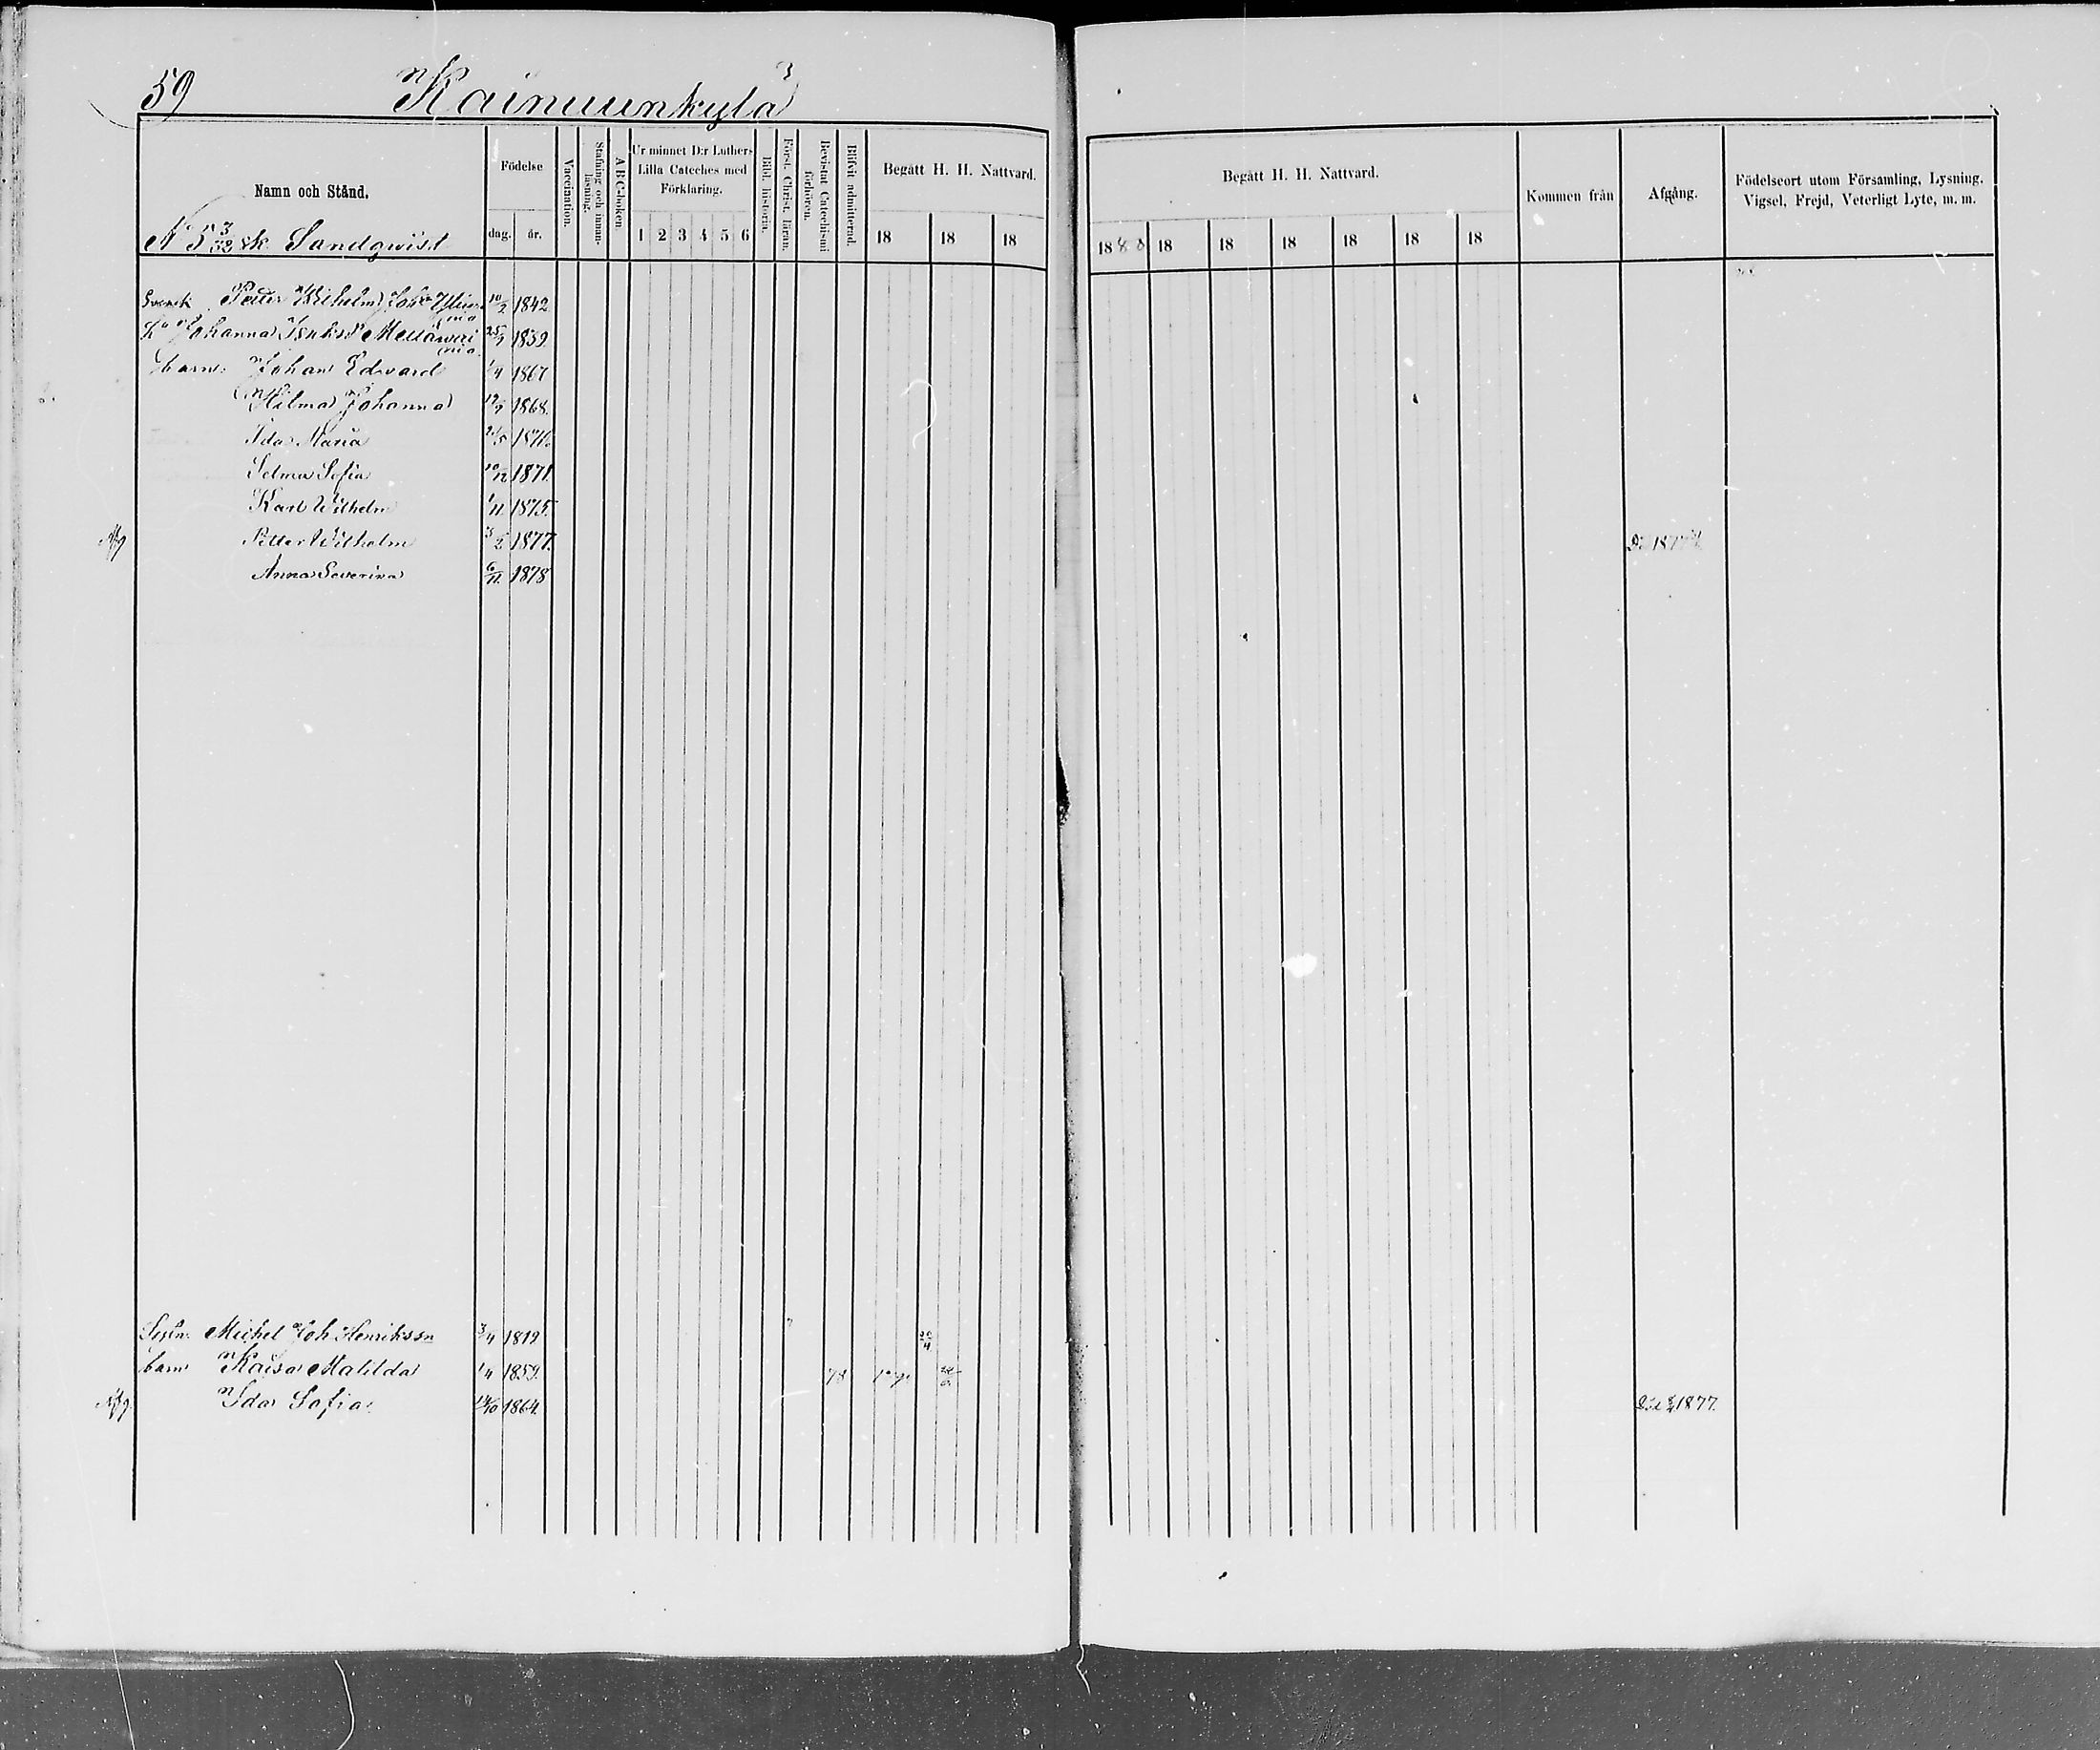 59 Kainuunkylä
Namn och Stånd.
Födelse
dag. år.
Vaccination.
Stafning och innan-
läsning.
ABC-boken.
Ur minnet D:r Luthers
Lilla Cateches med
Förklaring.
1 2 3 4 5 6
Bibl. historia.
Först. Christ. läran.
Bevistat Catechismi
förhören.
Blifvit admitterad.
Begått H. H. Nattvard.
18 18 18
Begått H. H. Nattvard.
1880 18 18 18 18 18 18
Kommen från
Afgång.
Födelseort utom Församling, Lysning.
Vigsel, Frejd, Veterligt Lyte, m. m.
N 5 3/32 sk. Sandqvist
Petter Wilhelm Joh 10/2 1842
Johanna 25/9 1839
barn: Johan Edvard 1/4 1867
Hilma Johanna 19/9 1868.
Ida Maria 21/5 1870
Selma Sofia 10/12 1871.
Karl Wilhelm 1/11 1875.
Afg Petter Wilhelm 3/2 1877. 1877
Anna Severina 6/11 1878
Michel Joh. Henriksson 3/4 1819
barn Kaisa Matilda 1/4 1859. 78
Afg. Ida Sofia 14/10 1864. 1877.